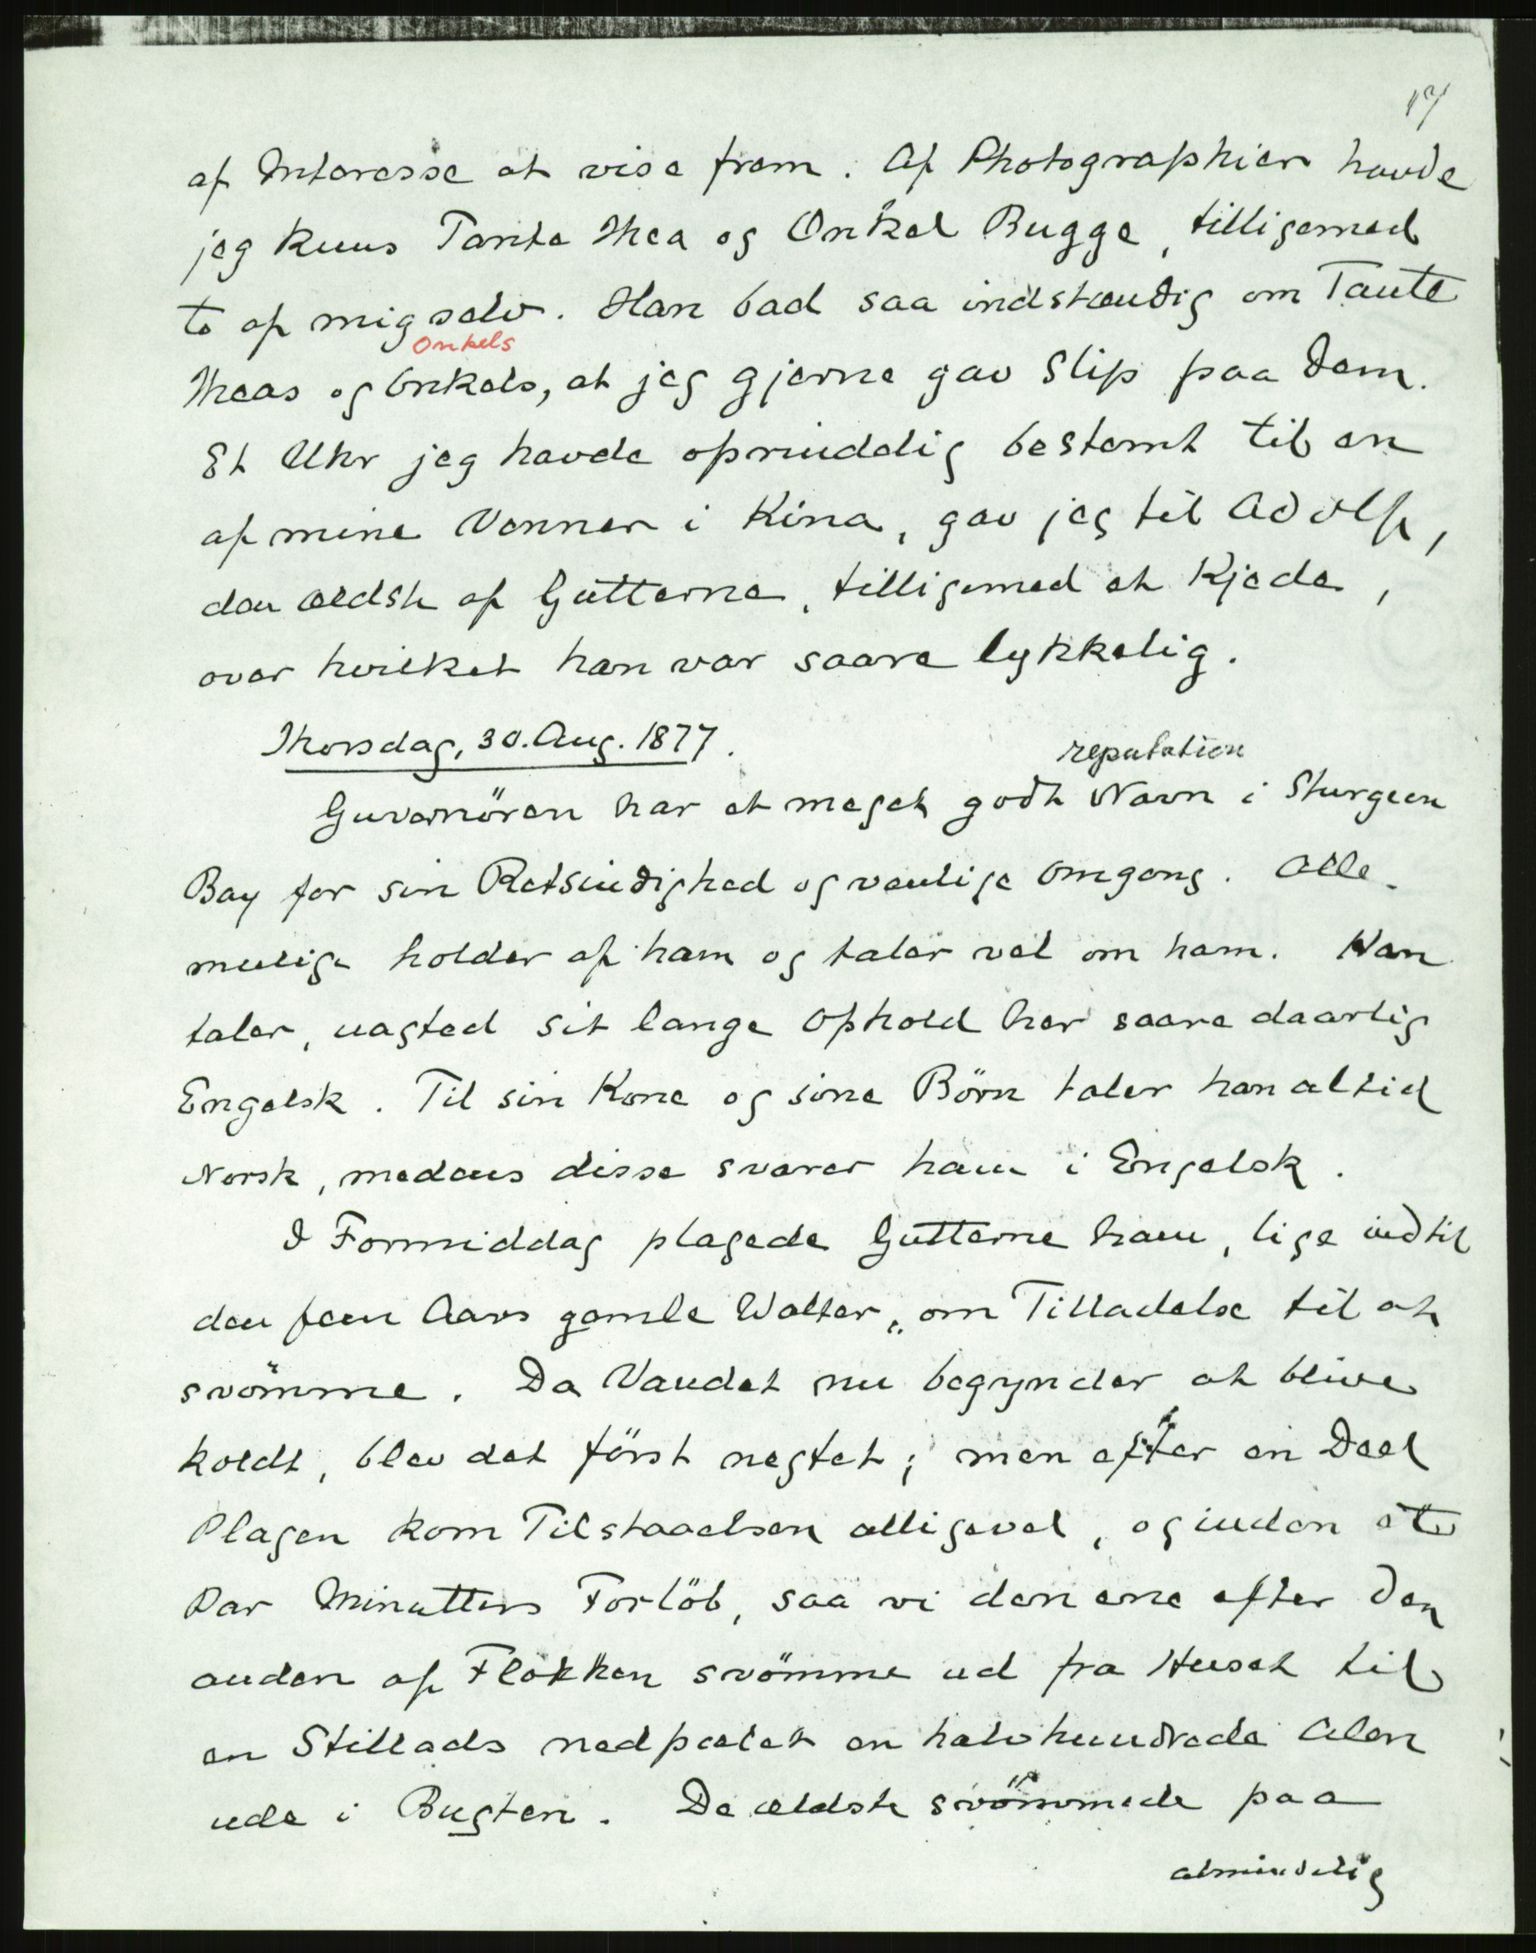 17
af Interesse at vise frem. Af Photographier havde
jeg kuns Tante Thea og Onkel Bugge, tilligemed
to af mig selv. Han bad saa indstændig om Tante
Onkels
Theas og Onkels, at jeg gjerne gav Slip paa dem.
Et Uhr jeg havde oprinddelig bestemt til en
af mine Venner i Kina, gav jeg til Adolf,
den ældste af Gutterne, tilligemed et Kjede,
over hvilket han var saare lykkelig.
Thorsdag, 30. Aug. 1877.
reputation
Guvernören har et meget godt Navn i Sturgeon
Bay for sin Retsindighed og venlige Omgang. Alle-
menlige holder af ham og taler vel om ham. Han
taler, uagted sit lange Ophold her saare daarlig
Engelsk. Til sin Kone og sine Börn taler han altid
Norsk, medens disse svarer ham i Engelsk.
I Formiddag plagede Gutterne ham, lige indtil
den fem Aars gamle Walter, om Tilladelse til at
svömme. Da Vandet nu begynder at blive
koldt, blev det först negtet; men efter en Deel
Plagen kom Tilstaaelsen alligevel, og inden et
Par Minutters Forlöb, saa vi den ene efter den
anden af Flokken svömme ud fra Huset til
en Stillads nedpælet en halvhundrede Alen
ude i Bugten. De ældste svömmede paa
almindelig